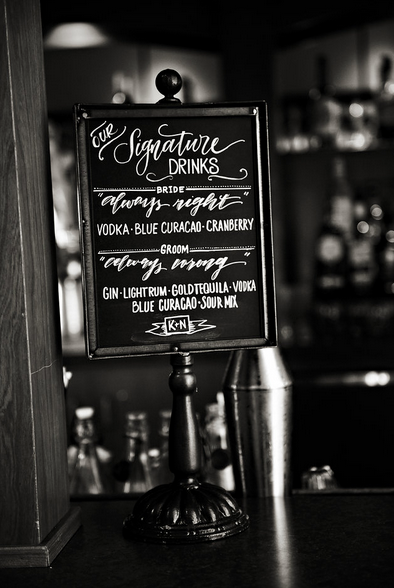 OUR
Signature
DRINKS
BRIDE
"always right"
VODKA · BLUE CURACAO · CRANBERRY
GROOM
"always wrong"
GIN · LIGHT RUM · GOLD TEQUILA · VODKA
BLUE CURACAO · SOUR MIX
K+N